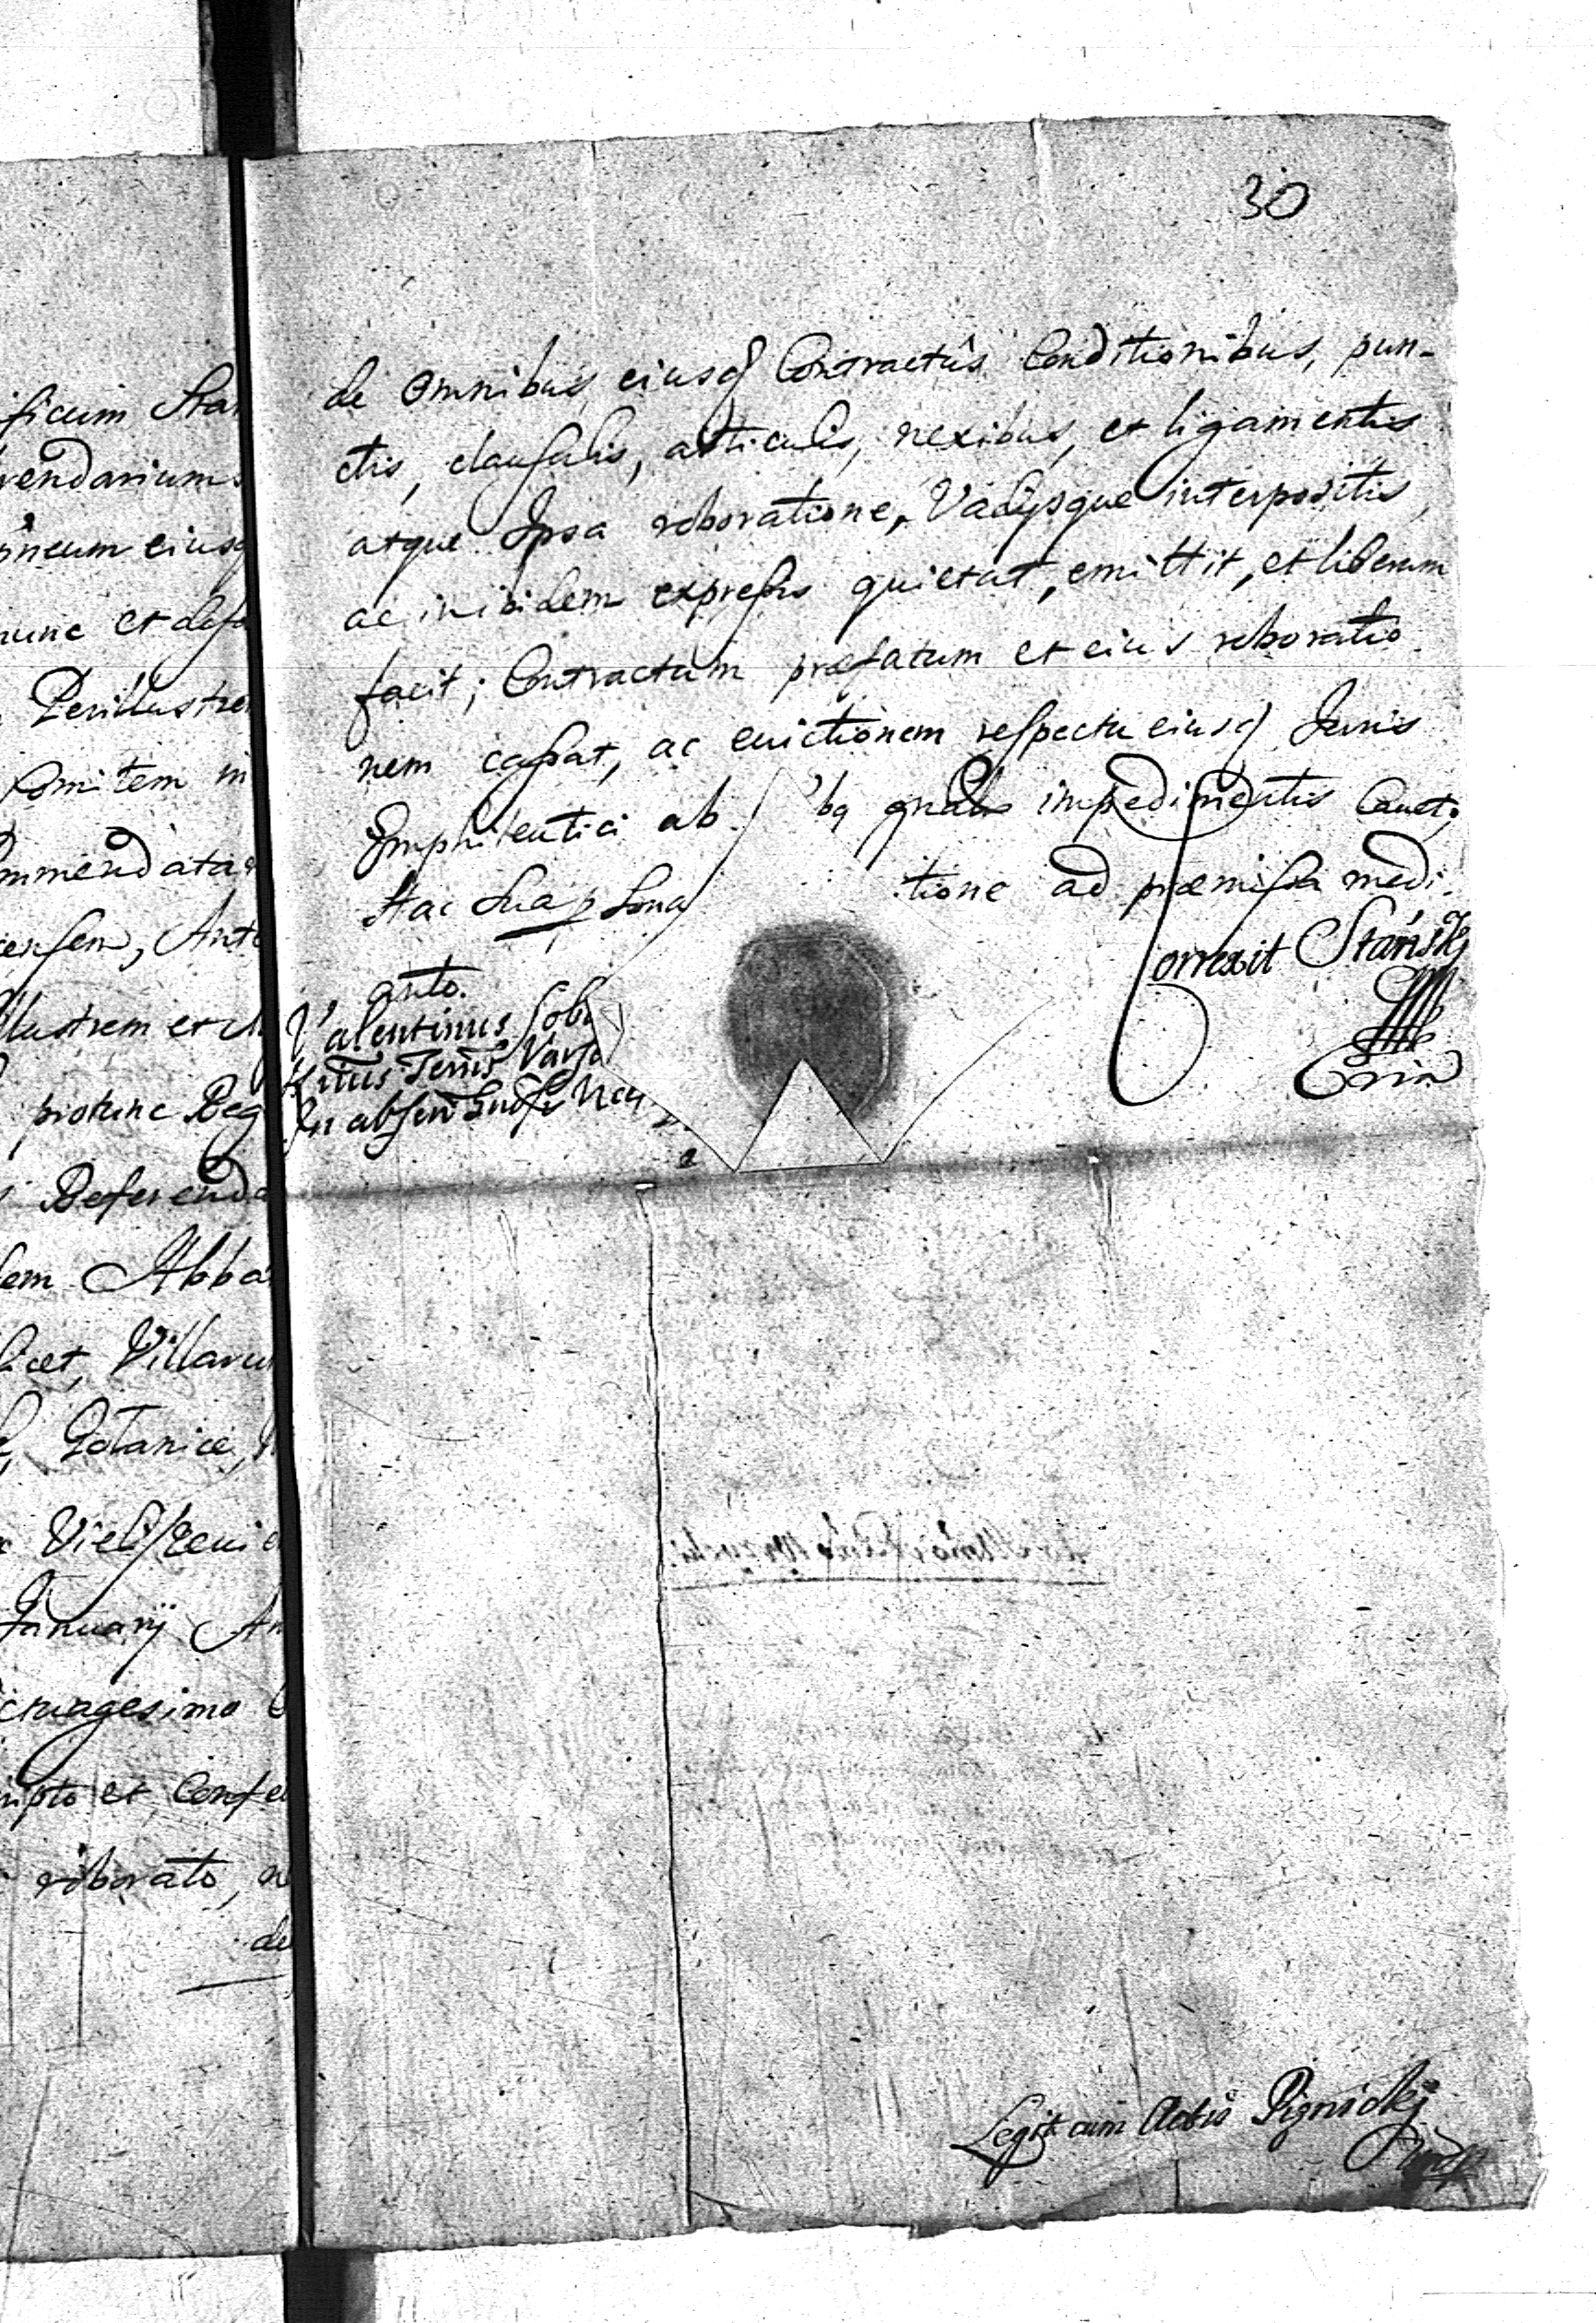 ficum Stan
rendarium
pneum eiusq
nunc et defa
Perillustrem
Comitem in
mmendatar
censem, Anto
llustrem et M
protunc Reg
Referenda
dem Abba
licet, Villaru
Gotanice,
January An
ctuagesimo
ripto et Confe
roborato, n
de
30
de omnibus eiusq Contractûs Conditionibus, pun-
ctis, clausulis, articulis, nexibus, et ligamentis
atque Ipsa roboratione, Vadijsque interpositis,
ac inibidem expressis quietat, emittit, et liberum
facit; Contractum præfatum et eius roboratio
nem cassat, ac evictionem respectu eiusq Juris
Emphiteutici ab bq gnalr impedimentis Cavet;
Hac Sua p sona tione ad præmissa medi-
ante.
Correxit Stański
Valentinus Sobo
Legit cum Actis Pignicki